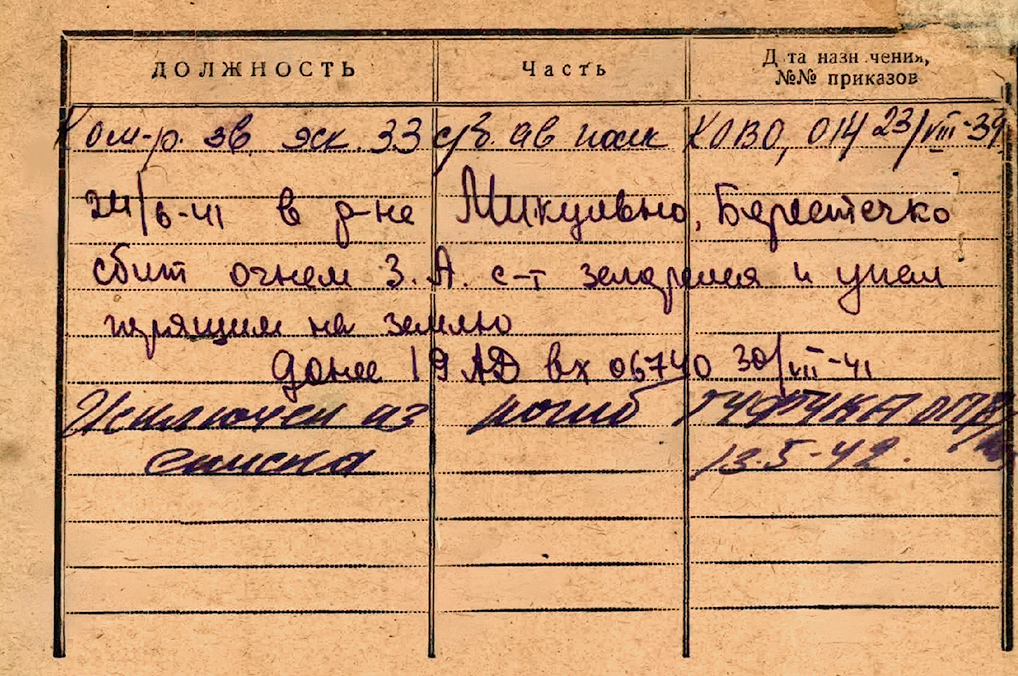 ДОЛЖНОСТЬ Часть Д та назн чения, №№ приказов
Ком-р. зв. эск. 33 с/б. ав полк КОВО, 014 23/VIII-39
24/6-41 в р-не Микулвно, Берестечко
сбит огнем З.А. с-т загорелся и упал
горящим на землю
донес 19 АД вх 06740 30/VII-41
Исключен из погиб ГУФУКА
списка 13.5-42.